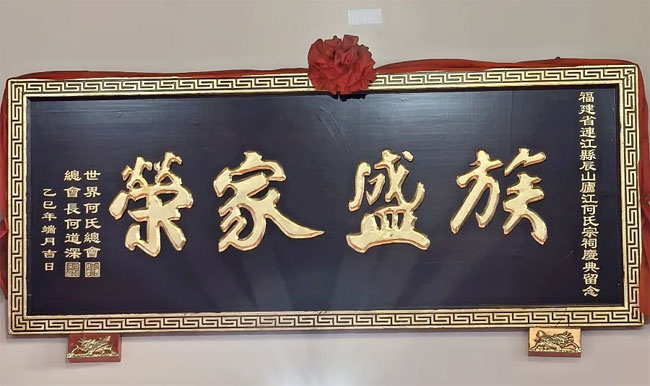 福建省連江縣辰山廬江何氏宗祠慶典留念
族盛家榮
世界何氏總會
總會長何道深
乙巳年端月吉日